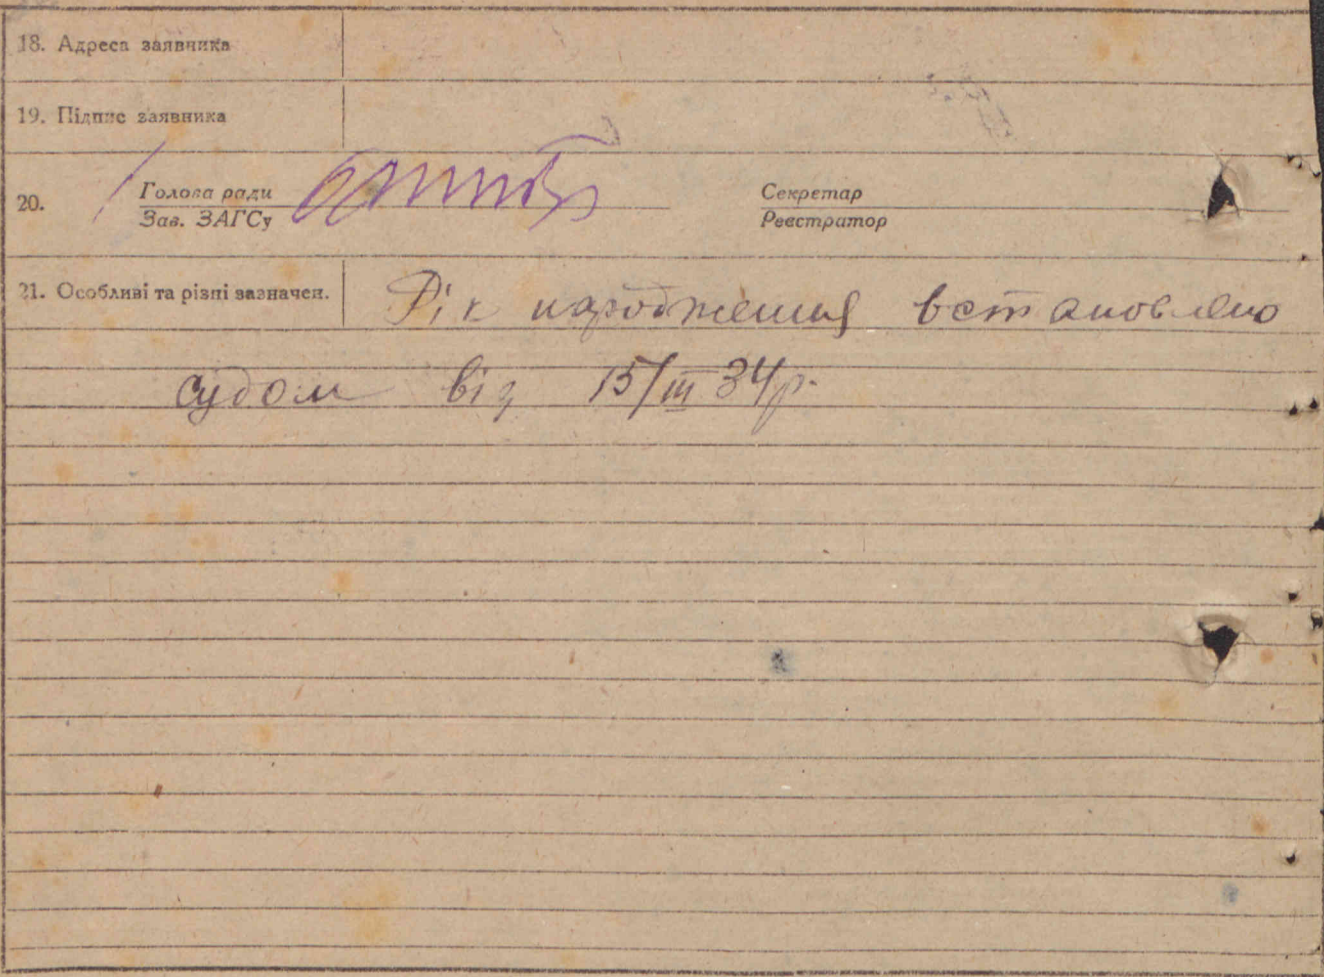 18. Адреса заявника
19. Підпис заявника
20. Голова ради Секретар
Зав. ЗАГСу Реєстратор
21. Особливі та різні зазначен. Рік народження встановлено
судом від 15/III 34р.